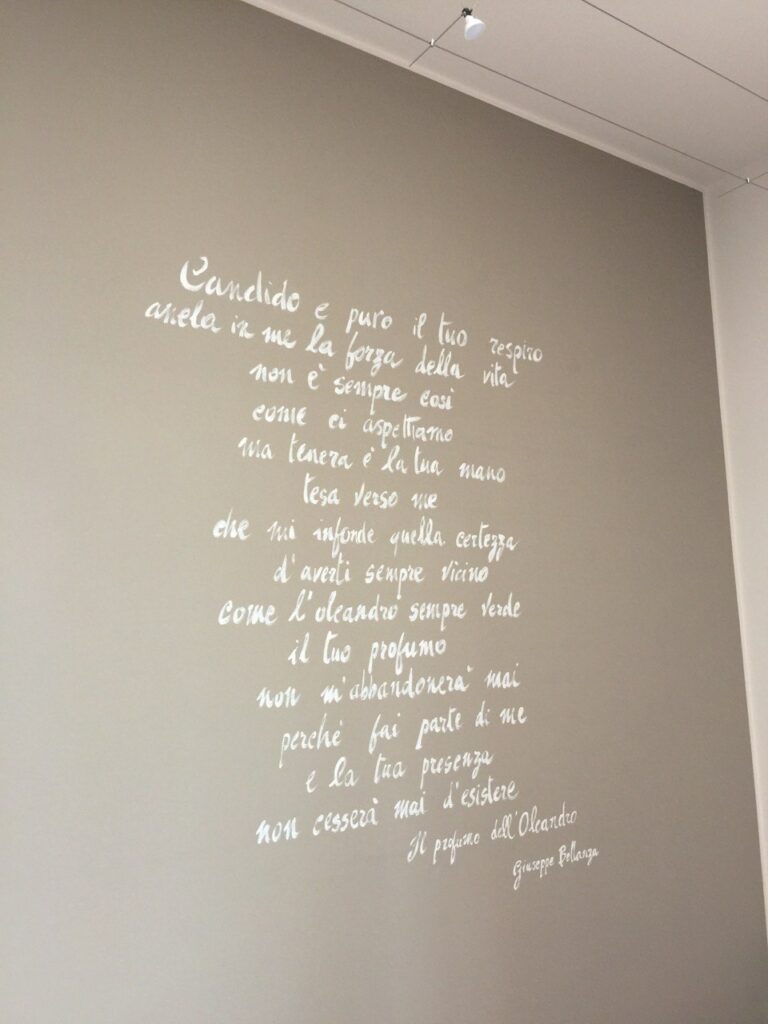 Candido e puro il tuo respiro
anela in me la forza della vita
non è sempre così
come ci aspettiamo
ma tenera è la tua mano
tesa verso me
che mi infonde quella certezza
d'averti sempre vicino
come l'oleandro sempre verde
il tuo profumo
non m'abbandonerà mai
perchè fai parte di me
e la tua presenza
non cesserà mai d'esistere
Il profumo dell'Oleandro
Giuseppe Bellanza